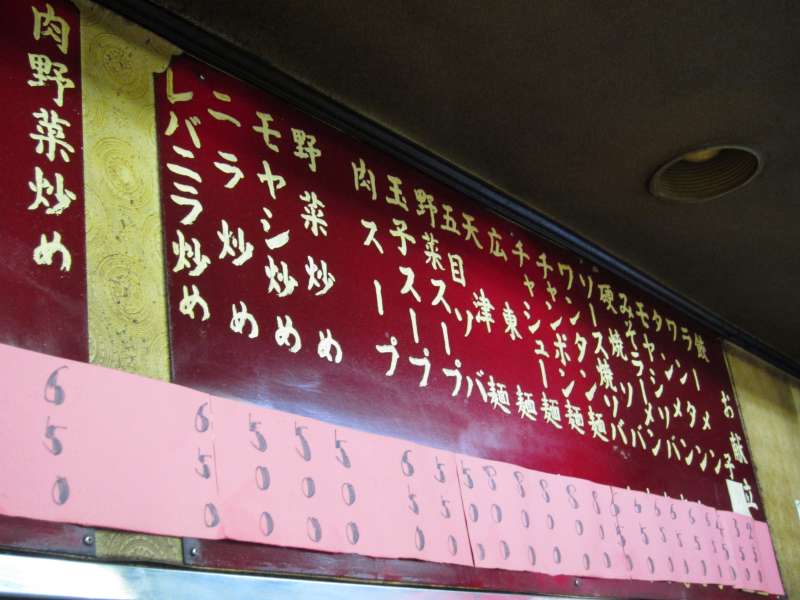 お献立
餃子
ラーメン
ワンタン
タンメン
モヤシソバ
みそラーメン
硬焼ソバ
ソース焼ソバ
ワンタン麺
チャンポン麺
チャシュー麺
広東麺
天津麺
五目ソバ
野菜スープ
玉子スープ
肉スープ
650
野菜炒め
550
モヤシ炒め
550
ニラ炒め
550
レバニラ炒め
650
肉野菜炒め
650